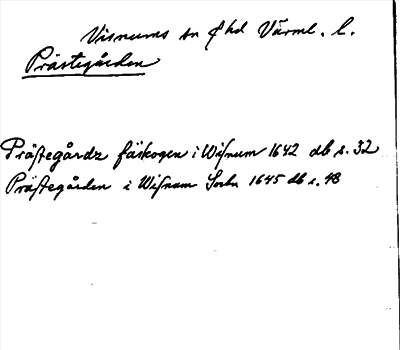 Visnums sn ¢ hd Värml. l.
Prästegården
Präftegårdz fäskogen i Wifnum 1642 db s. 32
Präftegården i Wifnum Sochn 1645 db s. 48